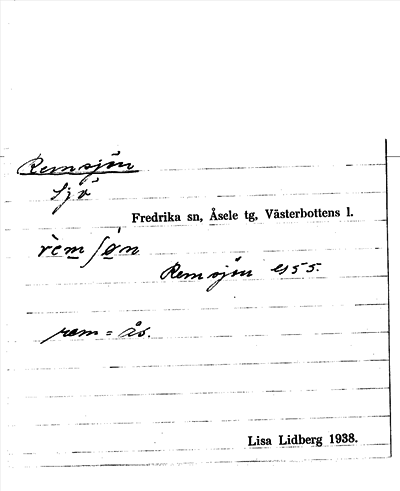 Remsjön
sjö
Fredrika sn, Åsele tg, Västerbottens l.
rèmʃøn
Remsjön GS 55.
rem = ås.
Lisa Lidberg 1938.